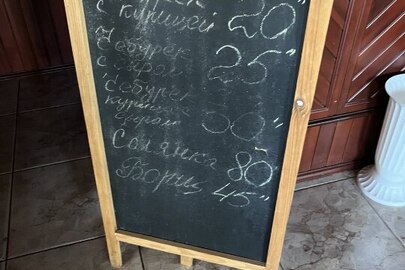 с курицей 20"
Чебурек
с сыром 25"
Чебурек
курица
сыром
Солянка 80"
Борщ 45"